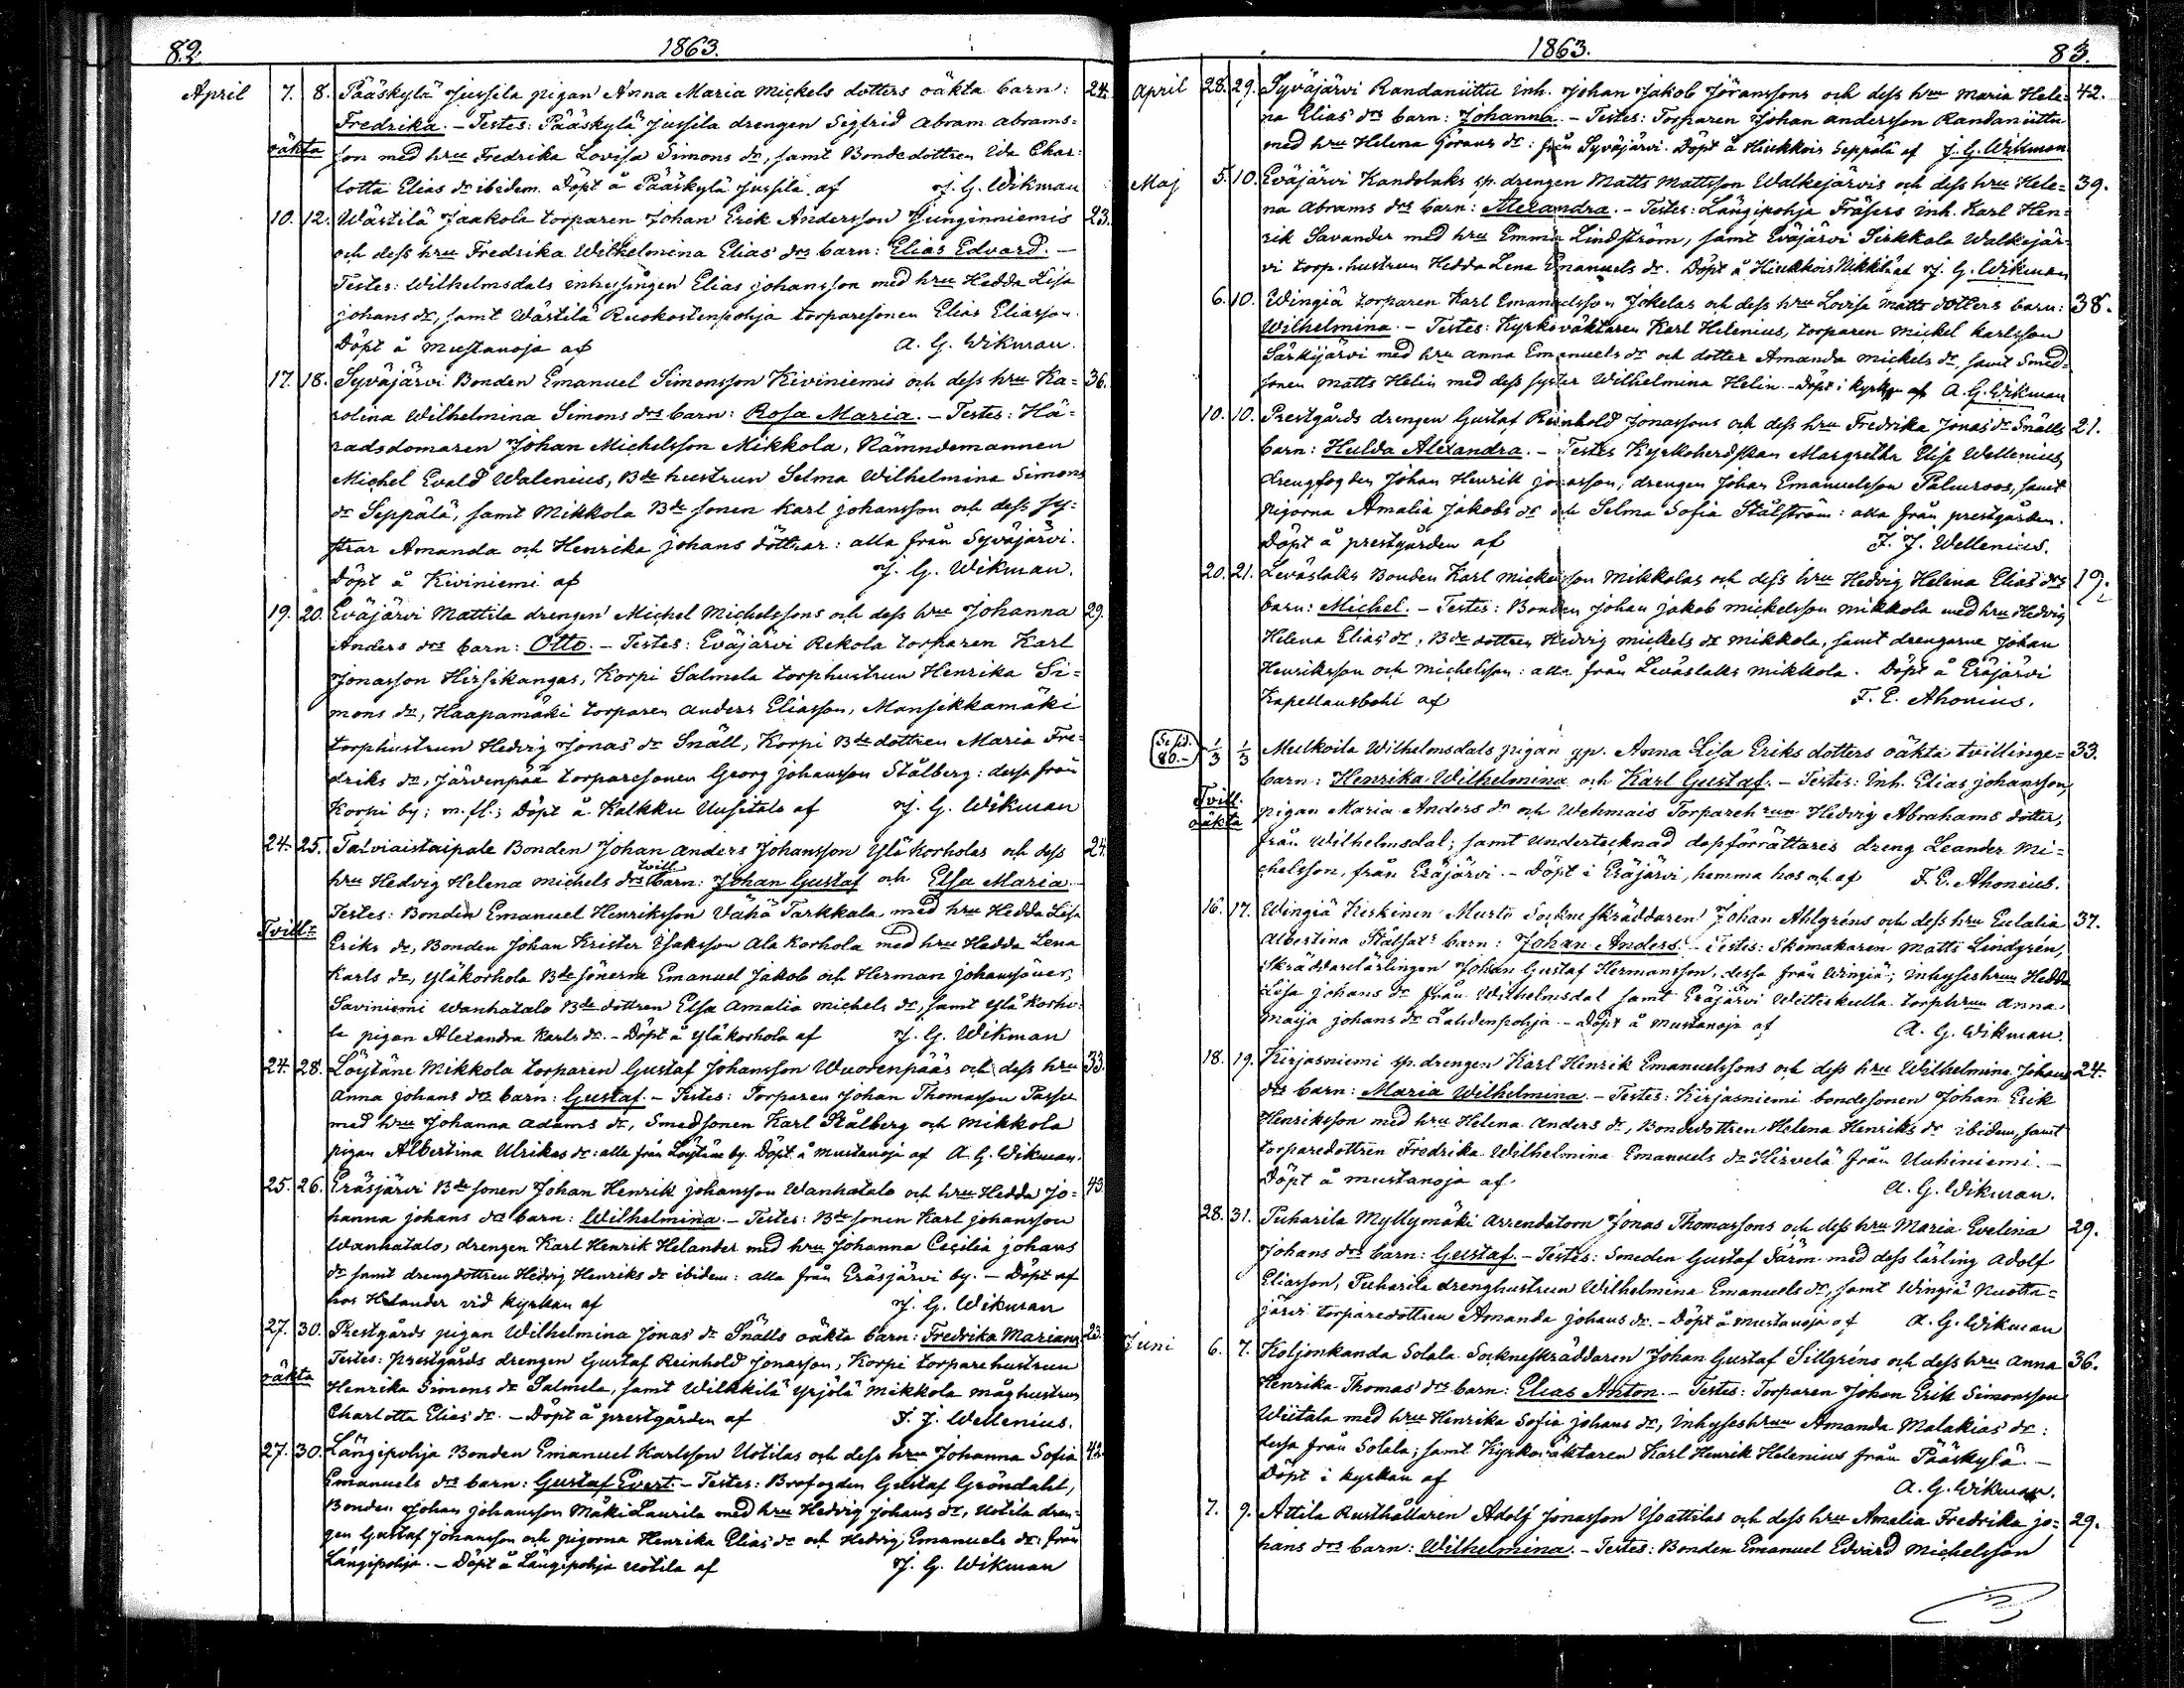 82. 1863.
April 7. 8. Pääskylä Jussila pigan Anna Maria Michels dotters oäkta barn: 24.
Fredrika. – Testes: Pääskylä Jussila drengen Sigfrid Abram Abrams=
oäkta son med hru Fredrika Lovisa Simons dr, samt Bondedottren Ida Char=
lotta Elias dr ibidem. Döpt å Pääskylä Jussila af J. G. Wikman
10. 12. Wästilä Jaakola torparen Johan Erik Andersson Junginniemis 23.
och dess hru Fredrika Wilhelmina Elias drs barn: Elias Edvard. –
Testes: Wilhelmsdals inhysingen Elias Johansson med hru Hedda Lisa
Johans dr, samt Wästilä Ruokostenpohja torparesonen Elias Eliasson.
Döpt å Mustanoja af A. G. Wikman.
17. 18. Syväjärvi Bonden Emanuel Simonsson Kiviniemis och dess hru Ka= 36.
rolina Wilhelmina Simons drs barn: Rosa Maria. – Testes: Hä=
radsdomaren Johan Michelsson Mikkola, Nämndemannen
Michel Evald Walenius, Bde hustrun Selma Wilhelmina Simons
dr Seppälä, samt Mikkola Bde sonen Karl Johansson och dess sy=
strar Amanda och Henrika Johans döttrar: alla från Syväjärvi.
Döpt å Kiviniemi af J. G. Wikman.
19. 20. Eväjärvi Mattila drengen Michel Michelssons och dess hru Johanna 29.
Anders drs barn: Otto. – Testes: Eväjärvi Rekola torparen Karl
Jonasson Hirsikangas, Korpi Salmela torphustrun Henrika Si=
mons dr, Haapamäki torparen Anders Eliasson, Mansikkamäki
torphustrun Hedvig Jonas dr Snäll, Korpi Bde dottren Maria Fre=
driks dr, Järvenpää torparesonen Georg Johansson Stålberg: dessa från
Korpi by; m. fl.; Döpt å Kalkku Uusitalo af J. G. Wikman
24. 25. Talviaistaipale Bonden Johan Anders Johansson Yläkorholas och dess 24.
tvill.
hru Hedvig Helena Michels drs barn: Johan Gustaf och Elsa Maria.
Testes: Bonden Emanuel Henriksson Vähä Tarkkala med hru Hedda Lisa
Tvillr Eriks dr, Bonden Johan Krister Isaksson Ala Korhola med hru Hedda Lena
Karls dr, Yläkorhola Bde sönerne Emanuel Jakob och Herman Johanssöner,
Saviniemi Wanhatalo Bde dottren Elsa Amalia Michels dr, samt Yläkorho=
la pigan Alexandra Karls dr. – Döpt å Yläkorhola af J. G. Wikman
24. 28. Löytäne Mikkola torparen Gustaf Johansson Wuorenpääs och dess hru 33.
Anna Johans drs barn: Gustaf. – Testes: Torparen Johan Thomasson Passu
med hru Johanna Adams dr, Smedsonen Karl Stålberg och Mikkola
pigan Albertina Ulrikas dr: alla från Löytäne by. Döpt å Mustanoja af A. G. Wikman.
25. 26. Eräsjärvi Bde sonen Johan Henrik Johansson Wanhatalo och hru Hedda Jo= 43
hanna Johans drs barn: Wilhelmina. – Testes: Bde sonen Karl Johansson
Wanhatalo, drengen Karl Henrik Helander med hru Johanna Cecilia Johans
dr samt drengdottren Hedvig Henriks dr ibidem: alla från Eräsjärvi by. – Döpt af
hos Helander vid kyrkan af J. G. Wikman
27. 30. Prestgårds pigan Wilhelmina Jonas dr Snälls oäkta barn: Fredrika Mariana 23.
Testes: prestgårds drengen Gustaf Reinhold Jonasson, Korpi torparehustrun
oäkta Henrika Simons dr Salmela, samt Wilkkilä Yrjölä Mikkola måghustrun
Charlotta Elias dr. – Döpt å prestgården af F. J. Wellenius.
27. 30. Längipohja Bonden Emanuel Karlsson Uotilas och dess hru Johanna Sofia 42
Emanuels drs barn: Gustaf Evert. – Testes: Brofogden Gustaf Gröndahl,
Bonden Johan Johansson Mäki Laurila med hru Hedvig Johans dr, Uotila dren=
gen Gustaf Johansson och pigorna Henrika Elias dr och Hedvig Emanuels dr: från
Längipohja. – Döpt å Längipohja Uotila af J. G. Wikman
1863. 83.
April 28. 29. Syväjärvi Randaniittu inh. Johan Jakob Jöranssons och dess hru Maria Hele= 42.
na Elias drs barn: Johanna. – Testes: Torparen Johan Andersson Randaniittu
med hru Helena Görans dr: från Syväjärvi. Döpt å Hiukkois Seppälä af J. G. Wikman
Maj 5. 10. Eväjärvi Kandolaks sp. drengen Matts Mattsson Walkejärvis och dess hru Hele= 39.
na Abrams drs barn: Alexandra. – Testes: Längipohja Fräsers inh. Karl Hen=
rik Savander med hru Emma Lindström, samt Eväjärvi Sirkkala Walkejär=
vi torp.hustrun Hedda Lena Emanuels dr. Döpt å Hiukkois Nikkilä af J. G. Wikman
6. 10. Wingiä torparen Karl Emanuelsson Jokelas och dess hru Lovisa Matts dotters barn: 38.
Wilhelmina. – Testes: Kyrkoväktaren Karl Helenius, torparen Mickel Karlsson
Särkijärvi med hru Anna Emanuels dr och dotter Amanda Mickels dr, samt Smed=
sonen Matts Helin med dess syster Wilhelmina Helin. – Döpt i kyrkan af A. G. Wikman
10. 10. Prestgårds drengen Gustaf Reinhold Jonassons och dess hru Fredrika Jonas dr Snälls 21.
barn: Hulda Alexandra. – Testes Kyrkoherdskan Margretha Elise Wellenius,
drengfogden Johan Henrik Jonasson, drengen Johan Emanuelsson Palmroos, samt
pigorna Amalia Jakobs dr och Selma Sofia Stålström: alla från prestgården.
Döpt å prestgården af F. J. Wellenius.
20. 21. Leväslaks Bonden Karl Mickelsson Mikkolas och dess hru Hedvig Helena Elias drs 19.
barn: Michel. – Testes: Bonden Johan Jakob Mickelsson Mikkola med hru Hedvig
Helena Elias dr, Bde dottren Hedvig Mickels dr Mikkola, samt drengarne Johan
Henriksson och Michelsson: alla från Leväslaks Mikkola. Döpt å Eräjärvi
Kapellansbohl af F. E. Ahonius.
80.– 1/3 1/3 Mulkoila Wilhelmsdals pigan Anna Lisa Eriks dotters oäkta tvillinge= 33.
barn: Henrika Wilhelmina och Karl Gustaf. – Testes: Inh. Elias Johansson,
Tvill. oäkta pigan Maria Anders dr och Wehmais Torpareh:run Hedvig Abrahams dotter,
från Wilhelmsdal; samt undertecknad dopförrättares dreng Leander Mi=
chelsson, från Eräjärvi. – Döpt i Eräjärvi, hemma hos och af F. E. Ahonius.
16. 17. Wingiä Keskinen Musto Sockneskräddaren Johan Ahlgréns och dess hru Eulalia 37.
Albertina barn: Johan Anders. – Testes: Skomakaren Matts Lindgrén,
Skräddarelärlingen Johan Gustaf Hermansson, dessa från Wingiä; inhyseshrun Hedda
Lisa Johans dr från Wilhelmsdal samt Eräjärvi torphrun Anna
Maija Johans dr Lahdenpohja. – Döpt å Mustanoja af A. G. Wikman.
18. 19. Kirjasniemi sp. drengen Karl Henrik Emanuelssons och dess hru Wilhelmina Johans 24.
drs barn: Maria Wilhelmina. – Testes: Kirjasniemi bondesonen Johan Erik
Henriksson med hru Helena Anders dr, Bondedottren Helena Henriks dr ibidem, samt
torparedottren Fredrika Wilhelmina Emanuels dr Hirvelä från Uuhiniemi. –
Döpt å Mustanoja af. A. G. Wikman.
28. 31. Puharila Myllymäki arrendatorn Jonas Thomassons och dess hru Maria Evelina 29.
Johans drs barn: Gustaf. – Testes: Smeden Gustaf Järn med dess lärling Adolf
Eliasson, Puharila drenghustrun Wilhelmina Emanuels dr, samt Wingiä Nuotta=
järvi torparedottren Amanda Johans dr. – Döpt å Mustanoja af A. G. Wikman
Juni 6. 7. Koljonkanda Solala Sockneskräddaren Johan Gustaf Sillgréns och dess hru Anna 36.
Henrika Thomas drs barn: Elias Anton. – Testes: Torparen Johan Erik Simonsson
Wiitala med hru Henrika Sofia Johans dr, inhyseshrun Amanda Malakias dr:
dessa från Solala; samt Kyrkoväktaren Karl Henrik Helenius från Pääskylä. –
Döpt i kyrkan af A. G. Wikman.
7. 9. Attila Rusthållaren Adolf Jonasson Isoattilas och dess hru Amalia Fredrika Jo= 29.
hans drs barn: Wilhelmina. – Testes: Bonden Emanuel Edvard Michelsson